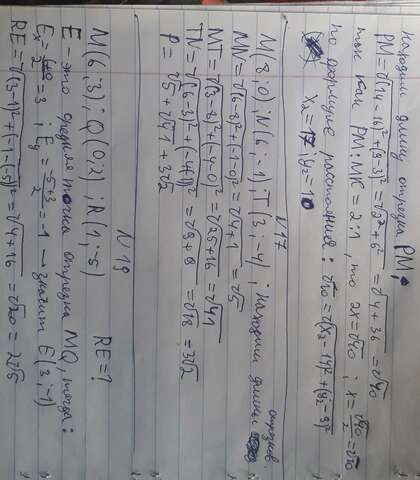 Находим длину отрезка PM:
PM=√(14-16)²+(9-3)²=√2²+6²=√4+36=√40
так как PM:MK=2:1, то 2x=√40; x=√40/2=√10
по формуле расстояния: √10=√(x₂-14)²+(y₂-9)²
x₂=17; y₂=10
N17
M(8;0); N(6;-1); T(3;-4); находим длины отрезков
MN=√(6-8)²+(-1-0)²=√4+1=√5
NT=√(3-8)²+(-4-0)²=√25+16=√41
TN=√(6-3)²+(-1+4)²=√9+9=√18=3√2
P=√5+√41+3√2
N19
M(6;3); Q(0;2); R(1;-5) RE=?
E-это средняя точка отрезка MQ, тогда:
Eₓ=6+0/2=3; Eᵧ=-5+3/2=-1 → значит E(3;-1)
RE=√(3-1)²+(-1-(-5))²=√4+16=√20=2√5